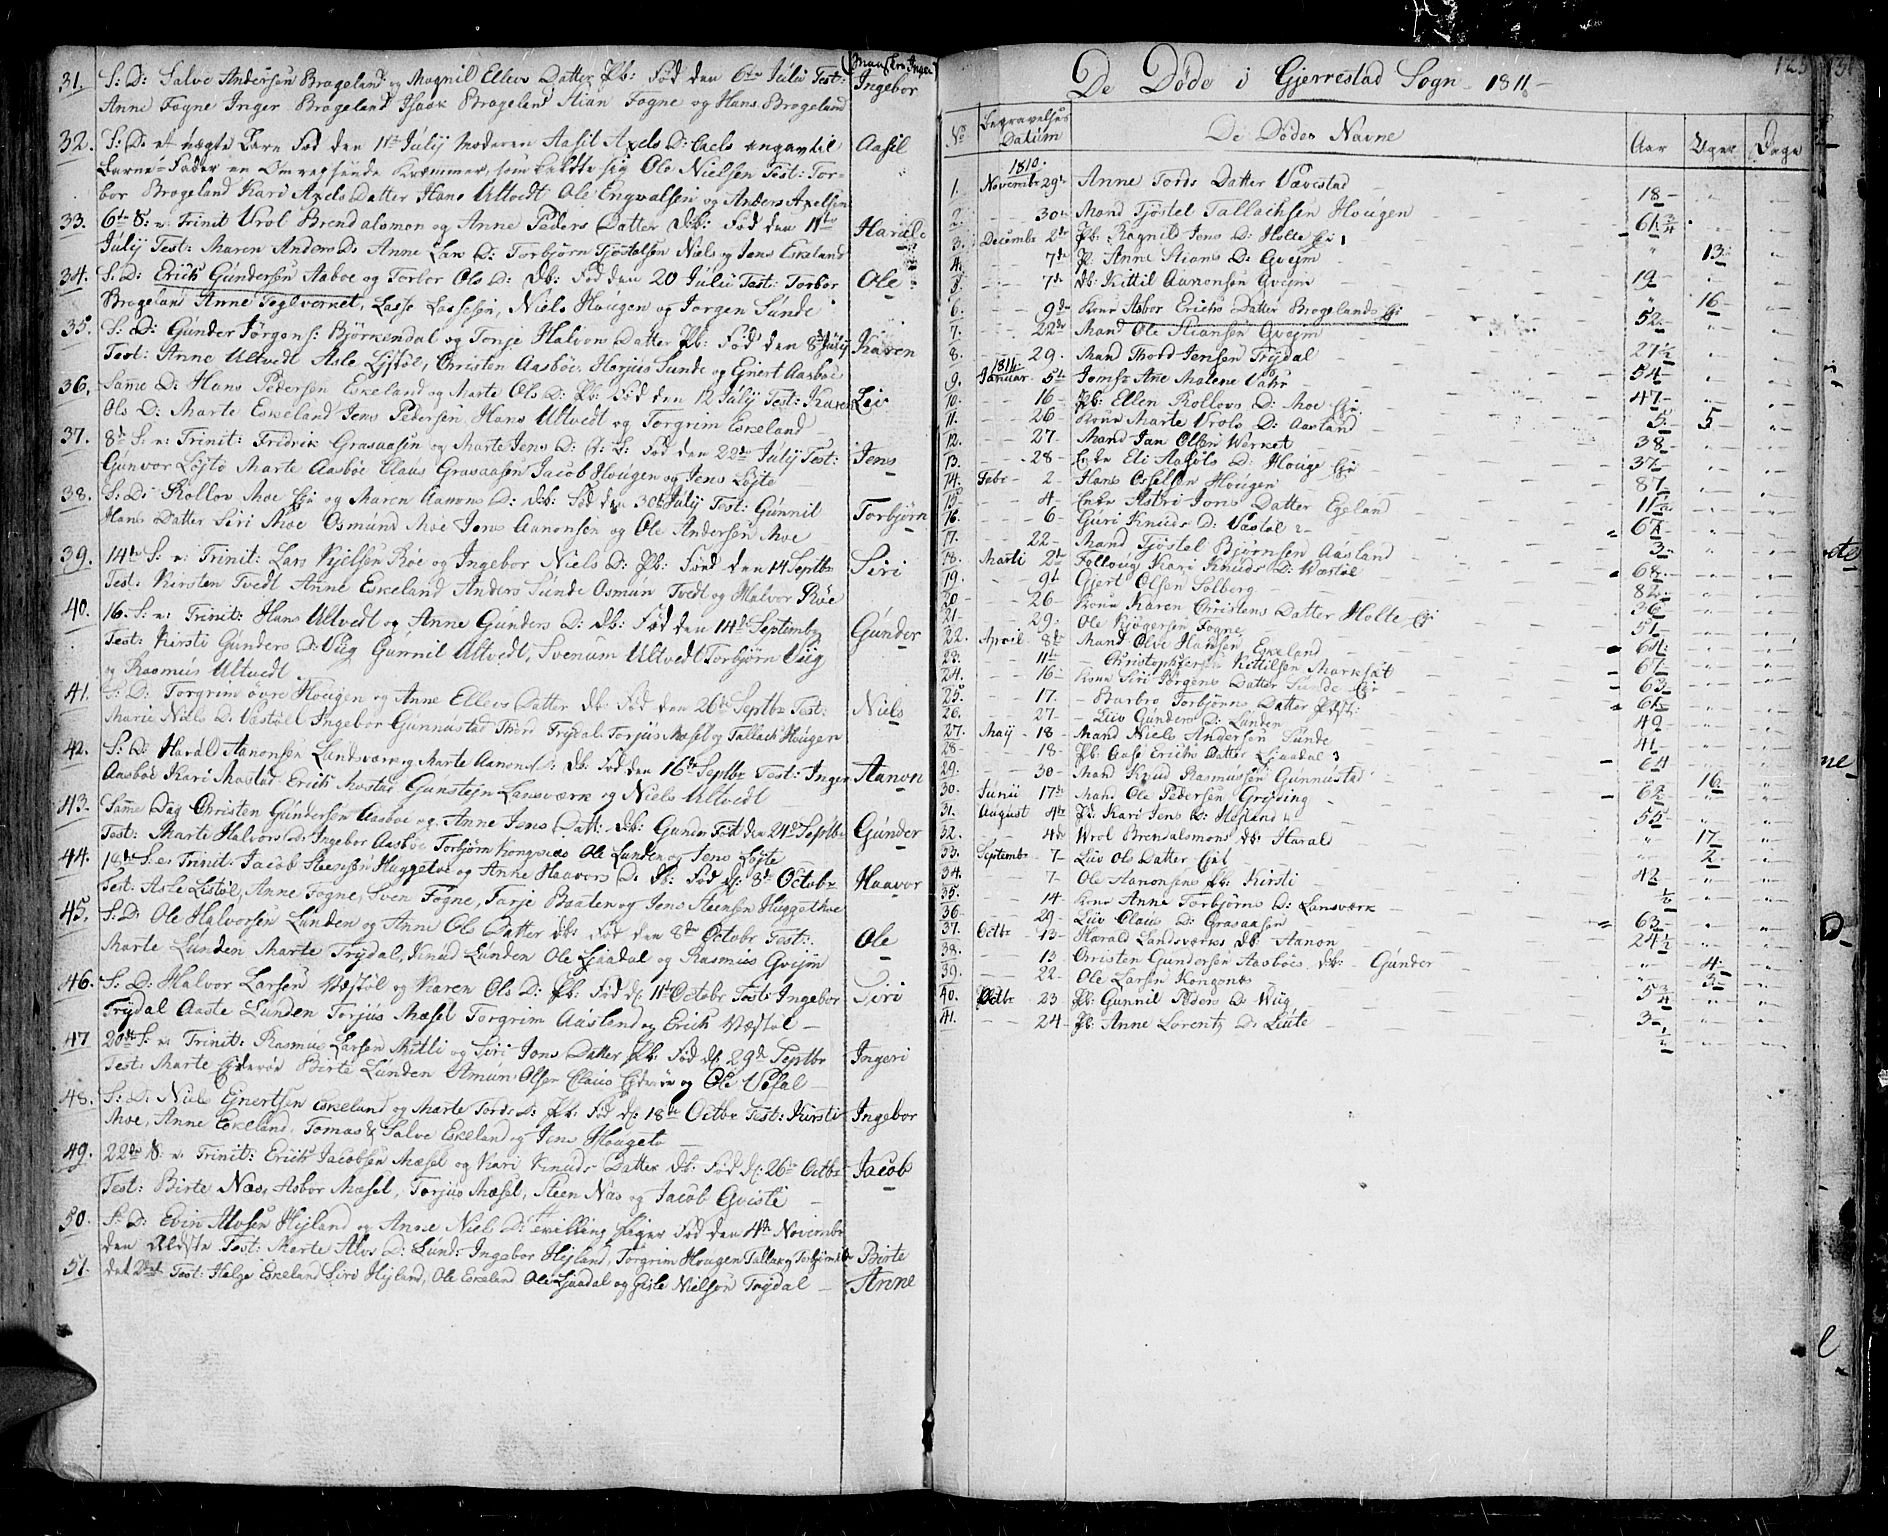 31. S: D: Salve Andersen Brageland og Magnil Ellevs Datter Pb: Fød den 6te Julii Test: Ingebor
Anne Fogne Inger Brageland Isaak Brageland Stian Fogne og Hans Brageland
32. S: D: et uægte Barn Fød den 11te Julÿ Moderen Aasil Axels D: angav til Aasil
Barne-Fader en Omrejsende Kræmmer, som kaldte sig Ole Nielsen Test: Tor-
bor Brageland Kari Axels Datter Hans Ultvedt Ole Engvalsen og Anders Axelsen
33. 6te S: n: Trinit Vrol Brendalsmon og Anne Peders Datter Db: Fød den 11te Harald
Julÿ Test: Maren Anders D: Anne Lan D: Torbjørn Tjøstolsen Niels og Jens Eskeland
34. S: D: Erich Gundersen Aaboe og Torbor Ols D: Db: Fød den 20 Julii Test: Torbor Ole
Brageland Anne Teglverket, Lasse Lassesen, Niels Hougen og Jørgen Sunde
35. S: D: Gunder Jørgens: Bjørkendal og Tonje Halvors Datter Pb: Fød den 8de Julÿ Karen
Test: Anne Ultvedt Asle Listøl, Christen Aasboe, Herjus Sunde og Ejvert Aasboe
36. Samme D: Hans Pedersen Eskeland og Marte Ols D: Pb: Fød den 12 Julÿ Test: Karen Liv
Ols D: Marte Eskeland Jens Pedersen Hans Ultvedt og Torgrim Eskeland
37. 8de S: n: Trinit: Fridrik Grasaasen og Marte Jens D: Fød den 22de Julÿ Test: Jens
Gunvor Løjte Marte Aasboe Claus Grasaasen Jacob Hougen og Jens Løjte
38. S: D: Rollov Moe og Maren Aanons D: Db: Fød den 30te Julÿ Test: Gunnil Torbjørn
Hans Datter Siri Moe Osmund Moe Jens Aanonsen og Ole Andersen Moe
39. 14te S: n: Trinit: Lars Kjelsen Røe og Ingebor Niels D: Pb: Fød den 14 Septbr Siri
Test: Kersten Tvedt Anne Eskeland Anders Sunde Osmun Tvedt og Halvor Røe
40. 16. S: n: Trinit: Hans Ultvedt og Anne Gunders D: Db: Fød den 14de Septembr Gunder
Test: Kirsti Gunders D: Viig Gunnil Ultvedt, Svenum Ultvedt Torbjørn Viig
og Rasmus Ultvedt
41. S: D: Torgrim øvre Hougen og Anne Ellevs Datter Db: Fød den 26de Septbr Test: Niels
Marie Niels D: Væstøl Ingebor Gunnustad Thord Trydal Torjus Mæsel og Tallach Hougen
42. S: D: Harald Aanonsen Landsværk og Marte Aanons D: Db: Fød den 16de Septbr Test: Inger Aanon
Aasboe Kari Mostad Erich Mostad Gunstejn Lansværk og Niels Ultvedt
43. Samme Dag Christen Gundersen Aasboe og Anne Jens Datt: Db: Gunder Fød den 24de Septbr Gunder
Test: Marte Halvors D: Ingebor Aasboe Torbjørn Kongsnes Ole Lunden og Jens Løjte
44. 18de S: n: Trinit: Jacob Steensen Huggetoe og Anne Haavors D: Db: Fød d: 8de Octobr Haavor
Test: Asle Listøl, Anne Fogne, Sven Fogne, Tarje Braaten og Jens Steensen Huggethoe
45. S: D: Ole Halvorsen Lunden og Anne Ols Datter Db: Fød den 8de Octobr Test: Ole
Marte Lunden Marte Trydal, Knud Lunden Ole Ljaadal og Rasmus Gvejm
46. S: D: Halvor Larsen Væstøl og Karen Ols D: Pb: Fød d: 11te Octobr Test: Ingebor Siri
Trydal Aaste Lunden Torjus Mæsel Torgrim Aasland og Erich Væstøl
47 20de S: n: Trinit: Rasmus Larsen Mitli og Siri Jens Datter Pb: Fød d: 29de Septbr Ingeri
Test: Marte Birte Lunden Osmun Olsen Claus og Ole Vefal
48. S: D: Niels Ejvertsen Eskeland og Marte Tords D: Pb: Fød d: 18de Octbr Test: Kirsti Ingebor
Moe, Anne Eskeland, Tomas & Salve Eskeland og Jens Hougeto
49. 22de S: n: Trinit: Erich Jacobsen Mæsel og Kari Knuds Datter Db: Fød d: 26de Octbr Jacob
Test: Birte Næs, Asbor Mæsel, Torjus Mæsel, Steen Næs og Jacob Gvisti
50. S: D: Evin Alvsen Hejland og Anne Niels D: tvilling Piger Fød den 4de Novembr
den Ældste Test: Marte Alvs D: Lund: Ingebor Hejland, Torgrim Hougen Tallak Torbjørnsen Birte
51. den 2den Test: Helge Eskeland Siri Hejland, Ole Eskeland Ole Ljaadal og Gisle Nielsen Trydal Anne
De Døde i Gjerrestad Sogn 1811
125
No Begravelses Datum De Dødes Navne Aar Uger Dage
1810.
1. Novembr 29de Anne Tords Datter Vævestad 18
2. 30te Mand Tjøstel Tallachsen Hougen 61 3/4
3. Decembr 2de Pb: Ragnild Jens D: Holte 13
4. 7de P: Anne Stians D: Gvejm
5. 7de Db: Kittil Aanonsen Gvejm 19
6. 9de Kone Asbor Erichs Datter Brageland 16
7. 22de Mand Ole Stiansen Gvejm 52
8. 29. Mand Thord Jensen Trydal 27 1/2
1811.
9. Januar 5te Jomfr Ane Malene Vahr 54
10. 16 Pb: Ellen Rollovs D: Moe 47
11. 26 Kone Marte Vrols D: Aasland 5 5
12. 27 Mand Jan Olsen Værket 38
13. 28 Enke Eli Aasols D: Houge 37
14. Febr 2 Hans Osselsen Hougen 87
15. 4 Enke Astri Jons Datter Egeland 11 1/2
16. 6 Guri Knuds D: Væstøl 67
17. 22 Mand Tjøstel Bjørnsen Aasland 3
18. Marti 2de Følloug Kari Knuds D: Væstøl 68
19. 9de Gjert Olsen Solberg 82
20 26 Kone Karen Christens Datter Holte 36
21 29. Ole Fogne 51
22. April 8de Mand Olve Hansen Eskeland 64
23. 11te Christophersen Kittilsen Marksæt 67
24. 16 Kone Siri Jørgens Datter Sunde 63
25. 17 Barbro Torbjørns Datter 61
26. 27 Liv Gunders D: Lunden 49
27. Maÿ 18 Mand Niels Andersen Sunde 41
28 18 Pb: Aase Erichs Datter Ljaadal 64
29. 30 Mand Knud Rasmussen Gunnustad 16
30. Junii 17de Mand Ole Pedersen Gryting 62
31. August 4de Pb: Kari Jens D: Hejland 55
32. 4de Vrol Brendalsmons Db: Harald 17
33. Septembr 7 Liv Ols Datter 2
34. 7 Ole Aanonsens Pb: Kirsti 42
35. 14 Kone Anne Torbjørns D: Lansværk 1/2
36. 29 Liv Claus D: Grasaasen 63
37. Octbr 13 Harald Landsværks Db: Aanon 24 1/2
38. 13 Christen Gundersen Aasboes Db: Gunder 4
39. 22 Ole Larsen Kongsnes 3
40. Octbr 23 Pb: Gunnil Peders D: Wiig 5 3/4
41. 24 Pb: Anne Lorentz D: Liute 3 1/2